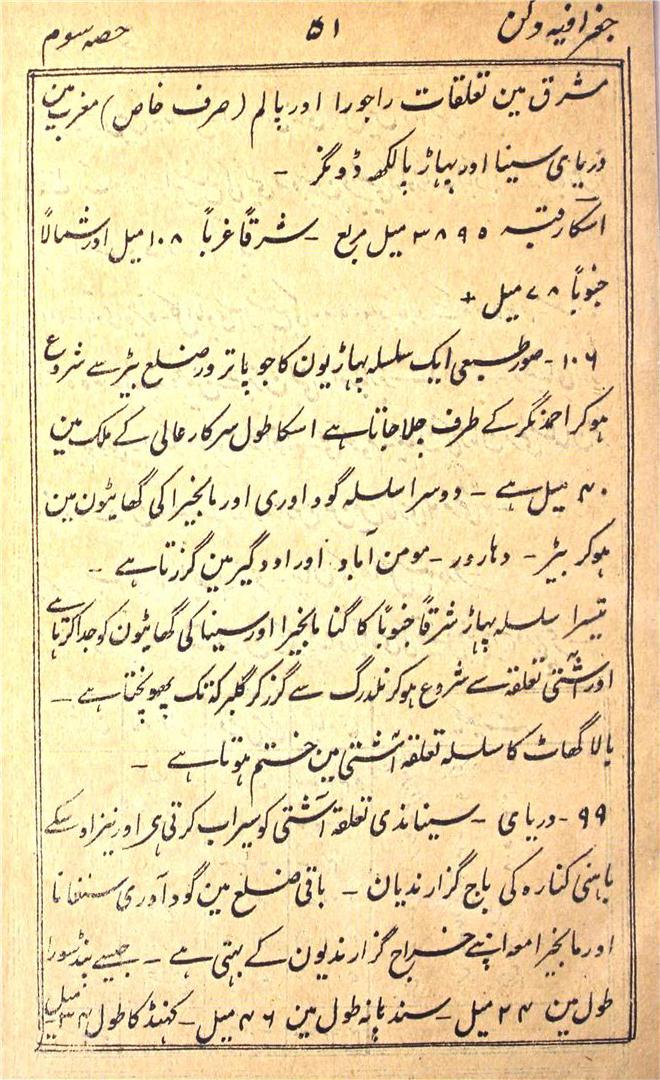 جغرافیہ دکن ۵۱ حصہ سوم
مشرق مین تعلقات راجورا اور بالم (صرف خاص) مغرب مین
دریای سینا اور پہاڑ پالکھ ڈونگر -
اسکا رقبہ ۳۸۹۵ میل مربع - شرقاً غرباً ۱۰۸ میل اور شمالاً
جنوباً ۷۸ میل +
۱۰۶ - صور طبعی ایک سلسلہ پہاڑیون کا جو پاترور ضلع بیڑ سے شروع
ہوکر احمد نگر کے طرف چلا جاتا ہے اسکا طول سرکار عالی کے ملک مین
۴۰ میل ہے - دوسرا سلسلہ گوداوری اور مانجیرا کی گھاٹیون مین
ہوکر بیڑ - دہارور - مومن آباد اور اودگیر مین گزرتا ہے -
تیسرا سلسلہ پہاڑ شرقاً جنوباً کا گنا مانجیرا اور سینا کی گھاٹیون کو جدا کرتا ہے
اور اشٹی تعلقہ سے شروع ہوکر نلدرگ سے گزر کر گلبرکہ تک پھونچتا ہے -
بالا گھاٹ کا سلسلہ تعلقہ آشٹی مین ختم ہوتا ہے -
۹۹ - دریای - سینا ندی تعلقہ آشٹی کو سیراب کرتی ہی اور نیز اوسکے
باہنی کنارہ کی باج گزار ندیان - باقی ضلع مین گوداوری سنفانا
اور مانجیرا معہ اپنے خراج گزار ندیون کے بہتی ہے - جیسے بنڈسورا
طول مین ۲۴ میل - سندپانہ طول مین ۴۶ میل - کہنڈ کا طول ۳۴ میل -